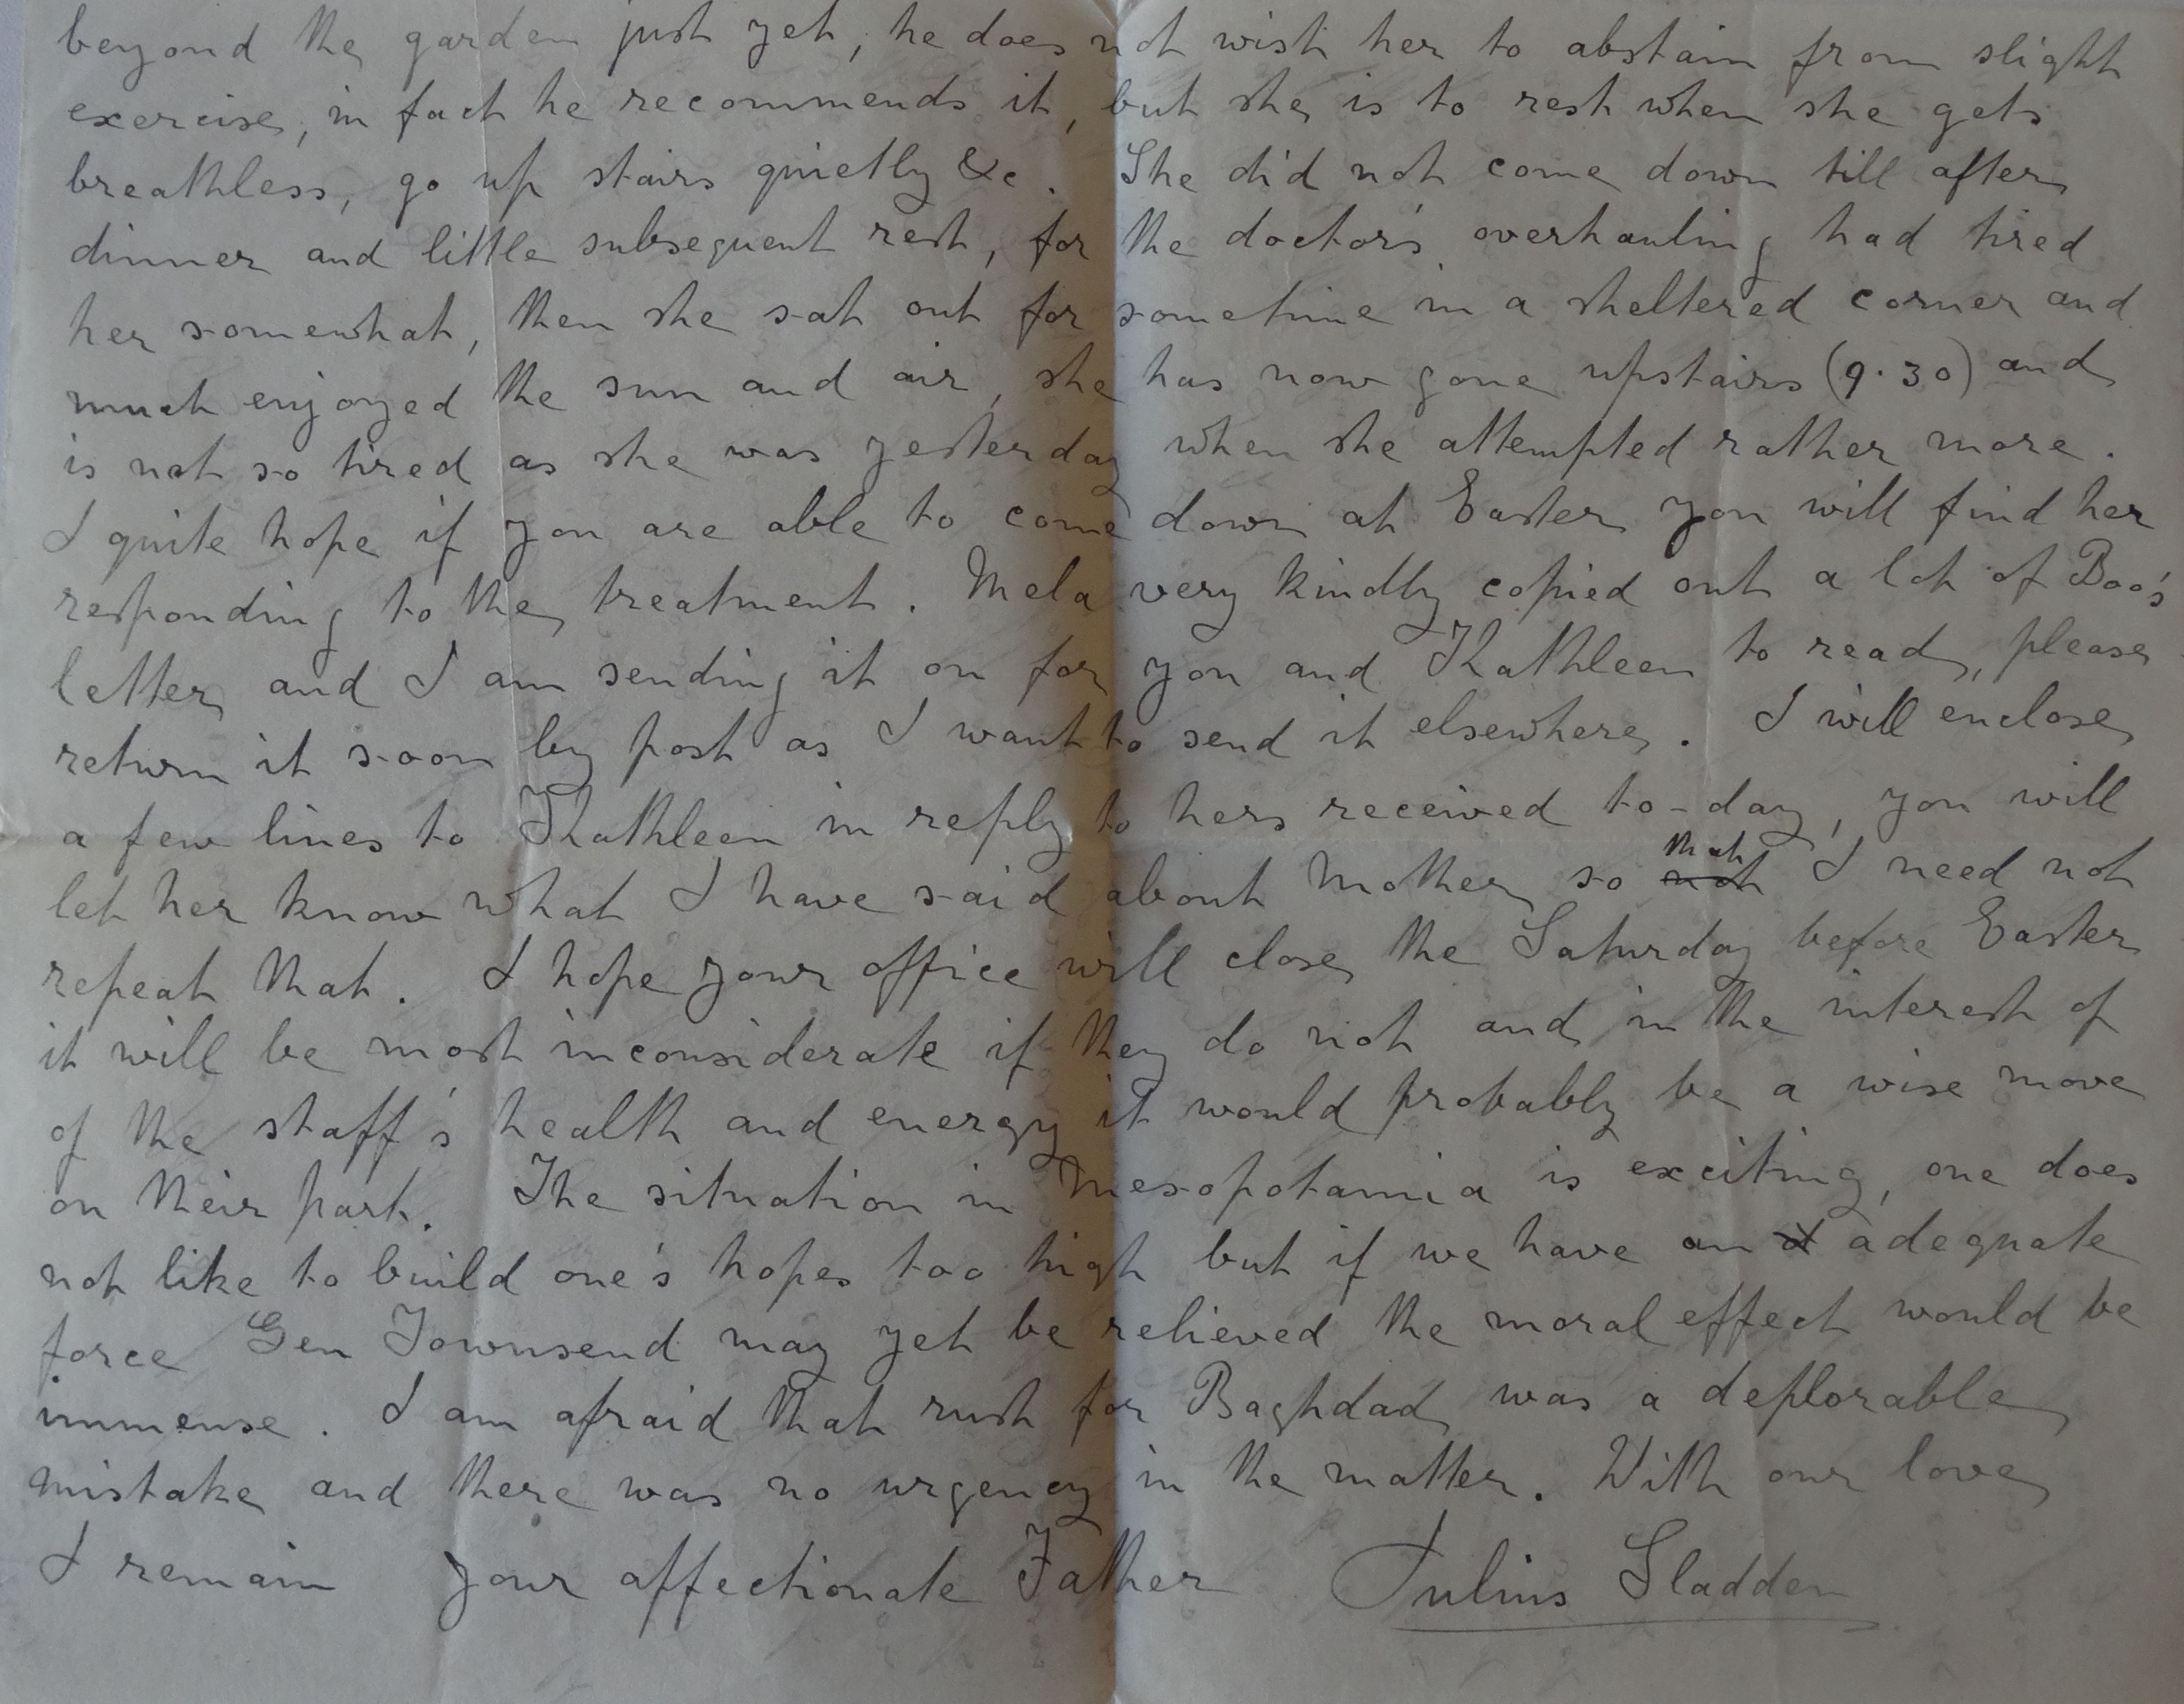 beyond the garden just yet, he does not wish her to abstain from slight
exercise, in fact he recommends it, but she is to rest when she gets
breathless, go up stairs quietly &c. She did not come down till after
dinner and little subsequent rest, for the doctor's overhauling had tired
her somewhat, then she sat out for sometime in a sheltered corner and
much enjoyed the sun and air, she has now gone upstairs (9.30) and
is not so tired as she was yesterday when she attempted rather more.
I quite hope if you are able to come down at Easter you will find her
responding to the treatment. Mela very kindly copied out a lot of Boo's
letter and I am sending it on for you and Kathleen to read, please
return it soon by post as I want to send it elsewhere. I will enclose
a few lines to Kathleen in reply to hers received to-day, you will
let her know what I have said about Mother so ~~not~~ that I need not
repeat that. I hope your office will close the Saturday before Easter
it will be most inconsiderate if they do not and in the interest of
of the staff's health and energy it would probably be a wise move
on their part. The situation in Mesopotamia is exciting, one does
not like to build one's hopes too high but if we have an adequate
force Gen Townsend may yet be relieved the moral effect would be
immense. I am afraid that rush for Baghdad was a deplorable
mistake and there was no urgency in the matter. With our love
I remain your affectionate Father Julius Sladden